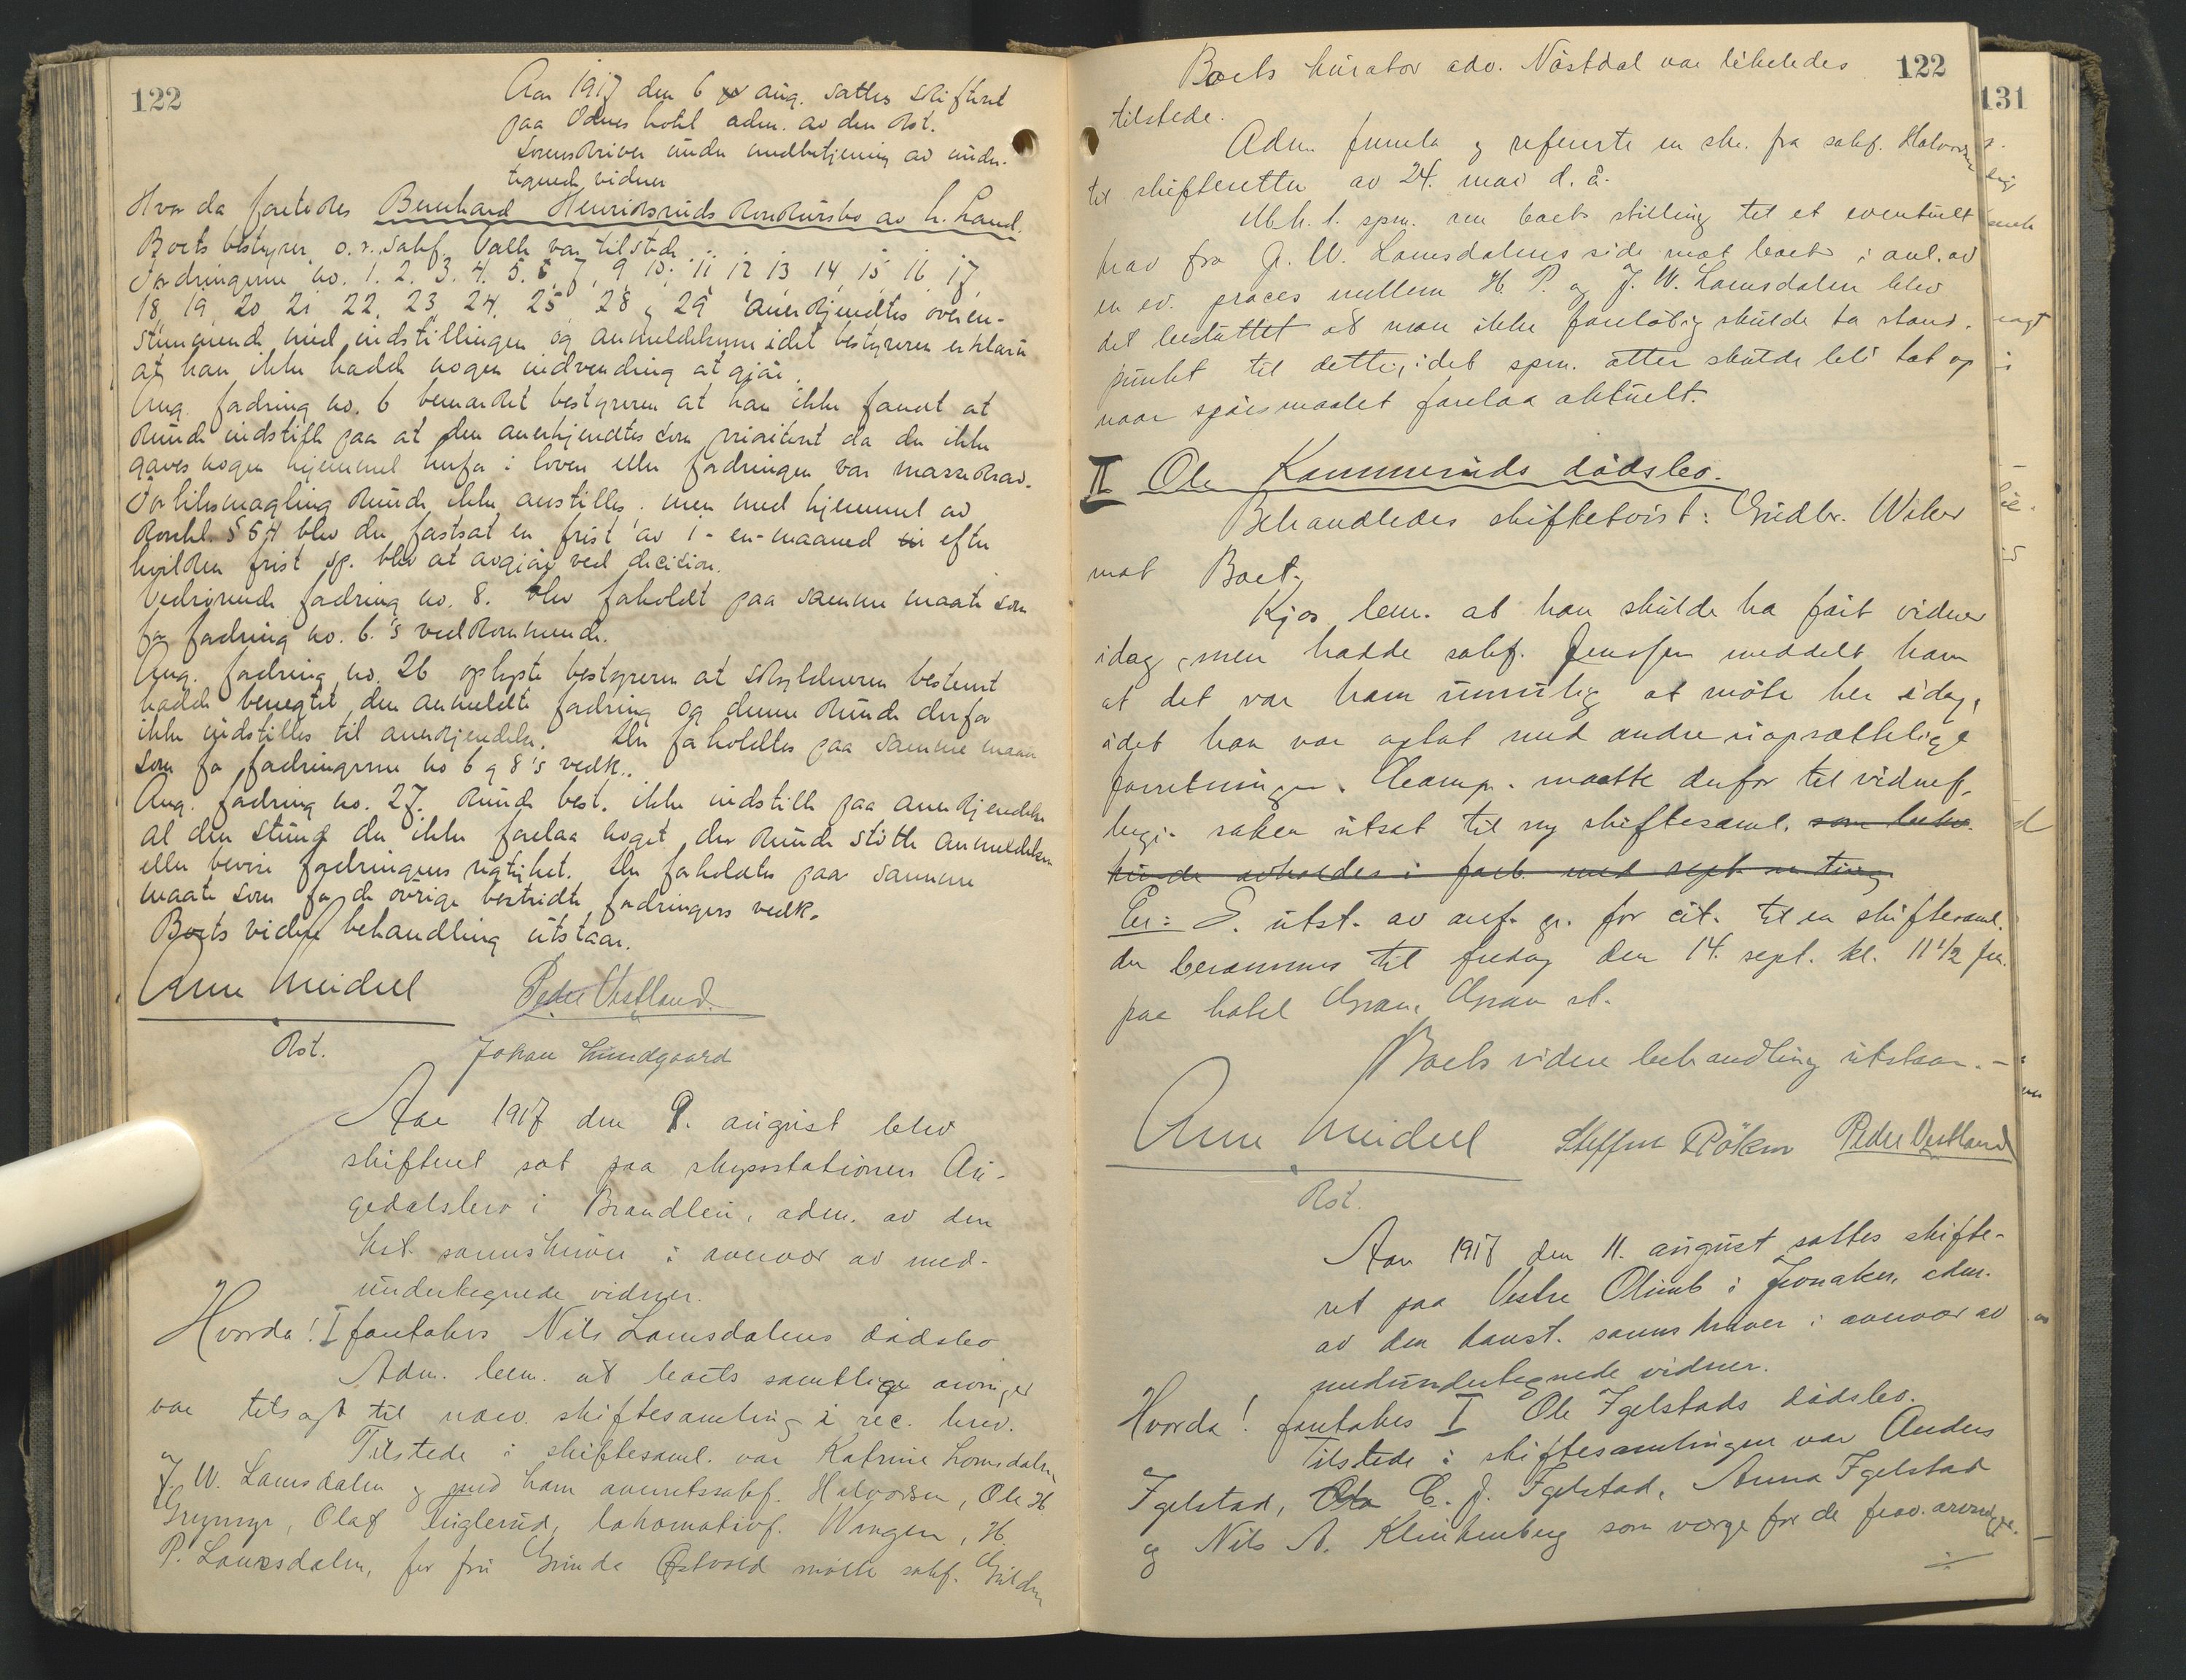 122
Aar 1917 den 6 aug. sattes skifteret
paa Odnes hotel adm. av den kst.
sorenskriver under medbetjening av under-
tegnede vidner
Hvor da foretoges Bernhard Henriksruds konkursbo av N. Land.
Boets bestyrer, o.r.sakf. Valle var tilstede.
Fordringerne no. 1. 2. 3. 4. 5. 6, 7, 9, 10. 11 12, 13, 14, 15, 16, 17,
18, 19, 20 21 22, 23, 24, 25, 28 & 29 anerkjendtes overen-
stemmende med indstillingen og anmeldelserne idet bestyreren erklærte
at han ikke hadde nogen indvending at gjöre.
Ang. fordring no. 6 bemerket bestyreren at han ikke fandt at
kunde indstille paa at den anerkjendtes som prioritert da der ikke
gaves nogen hjemmel herfor i loven eller fordringen var massekrav.
Forliksmægling kunde ikke anstilles, men med hjemmel av
konkl. § 54 blev der fastsat en frist av 1 - en - maaned efter
hvilken frist sp. blev at avgjöre ved decision.
Vedrörende fordring no. 8. blev forholdt paa samme maate som
for fordring no. 6.'s vedkommende.
Ang. fordring no. 26 oplyste bestyreren at skyldneren bestemt
hadde benegtet den anmeldte fordring og denne kunde derfor
ikke indstilles til anerkjendelse. Der forholdtes paa samme maate
som for fordringerne no 6 & 8's vedk..
Ang. fordring no. 27. kunde best. ikke indstille paa anerkjendelse
al den stund der ikke forelaa noget der kunde stötte anmeldelsen
eller bevise fordringens rigtighet. Der forholdtes paa samme
maate som for de övrige bestridte fordringers vedk.
Boets videre behandling utstaar.
Arne Meidell Peder Vestland
Kst. Johan Lundgaard
Aar 1917 den 9. august blev
skifteret sat paa skysstationen Au-
gedalsbro i Brandbu, adm. av den
kst. sorenskriver i overvær av med-
undertegnede vidner.
Hvorda! I foretokes Nils Lomsdalens dödsbo
Adm. bem. at boets samtlige arvinger
var tilsagt til nærv. skiftesamling i rec. brev.
Tilstede i skiftesaml. var Katrine Lomsdalen
J. W. Lomsdalen og med ham overretssakf. Halvorsen, Ole H.
Grymyr, Olaf Fuglerud, lokomotivf. Wangen, H.
P. Lomsdalen, for fru Gunda Östvold mötte sakf. Gulden
Boets kurator adv. Nöstdal var likeledes 122
tilstede.
Adm. fremla og refererte en skr. fra sakf. Halvorsen
til skifteretten av 24. mai d. å.
M.h.t. spm. om boets stilling til et eventuelt
krav fra J. W. Lomsdalens side mot boet i anl. av
en ev. proces mellem H. P. og J. W. Lomsdalen blev
det besluttet at man ikke forelöbig skulde ta stand-
punkt til dette, idet spm. atter skulde bli tat op
naar spörsmaalet forelaa aktuelt.
II Ole Kammeruds dödsbo.
Behandledes skiftetvist: Gudbr. Wiker
mot Boet.
Kjos bem. at han skulde ha fört vidner
idag, men hadde sakf. Jenssen meddelt ham
at det var ham umulig at möte her idag,
idet han var optat med andre uopsættelige
forretninger. Comp. maatte derfor til vidnef.
begj. saken utsat til ny skiftesaml. som
kunde avholdes i forb. med sept. m ting
Er: S. utst. av anf. gr. for cit. til en skiftesaml.
der berammes til fredag den 14. sept. kl. 11 1/2 fm.
paa hotel Gran, Gran st.
Boets videre behandling utstaar. -
Arne Meidell Steffen Röken Peder Vestland
Kst.
Aar 1917 den 11. august sattes skifte-
ret paa Vestre Olimb i Jevnaker, adm.
av den konst. sorenskriver i overvær av
medundertegnede vidner.
Hvorda! foretokes I Ole Igelstads dödsbo.
Tilstede i skiftesamlingen var Anders
Igelstad, C. J. Igelstad, Anna Igelstad
og Nils A. Klinkenberg som verge for de frav. arvinger.
131